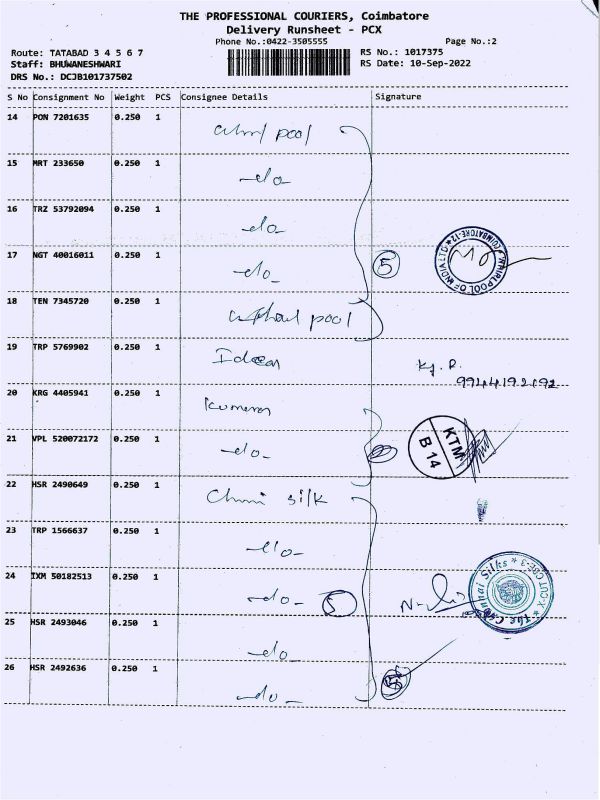 THE PROFESSIONAL COURIERS, Coimbatore
Delivery Runsheet - PCX
Phone No.:0422-3505555 Page No.:2
Route: TATABAD 3 4 5 6 7 RS No.: 1017375
Staff: BHUWANESHWARI RS Date: 10-Sep-2022
DRS No.: DCJB101737502
S No Consignment No Weight PCS Consignee Details Signature
14 PON 7201635 0.250 1 pool
15 MRT 233650 0.250 1 -do-
16 TRZ 53792094 0.250 1 -do-
17 NGT 40016011 0.250 1 -do- 5
WHIRLPOOL OF INDIA LTD * COIMBATORE-12 *
18 TEN 7345720 0.250 1 pool
19 TRP 5769902 0.250 1
20 KRG 4405941 0.250 1
21 VPL 520072172 0.250 1 -do-
KTM
B 14
22 HSR 2490649 0.250 1 silk
23 TRP 1566637 0.250 1 -do-
24 IXM 50182513 0.250 1 -do- 5
The Chennai Silks * X-CUT CBE-3 *
25 HSR 2493046 0.250 1 -do-
26 HSR 2492636 0.250 1 -do- 5